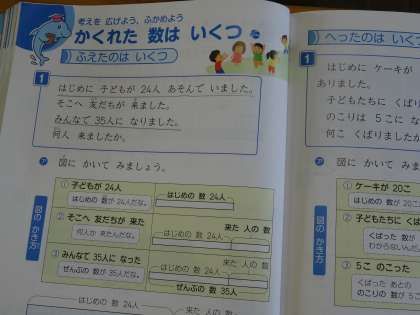 考えを 広げよう、ふかめよう
かくれた 数は いくつ
ふえたのは いくつ
1
はじめに 子どもが 24人 あそんで いました。
そこへ 友だちが 来ました。
みんなで 35人に なりました。
何人 来ましたか。
㋐ 図に かいて みましょう。
図の かき方
① 子どもが 24人
はじめの 数が 24人だな。
はじめの 数 24人
② そこへ 友だちが 来た
何人か 来たんだな。
来た 人の 数
はじめの 数 24人
③ みんなで 35人に なった
ぜんぶの 数が 35人だな。
来た 人の 数
はじめの 数 24人
ぜんぶの 数 35人
はじめの 数 24人
へったのは いく
1
はじめに ケーキが
ありました。
子どもたちに くば
のこりは 5こに な
何こ くばりましたか
㋐ 図に かいて み
図の かき方
① ケーキが 20こ
はじめの 数が 20こ
② 子どもたちに くば
くばった 数が
わからないんだ
③ 5こ のこった
くばった あとの
のこりの 数が 5